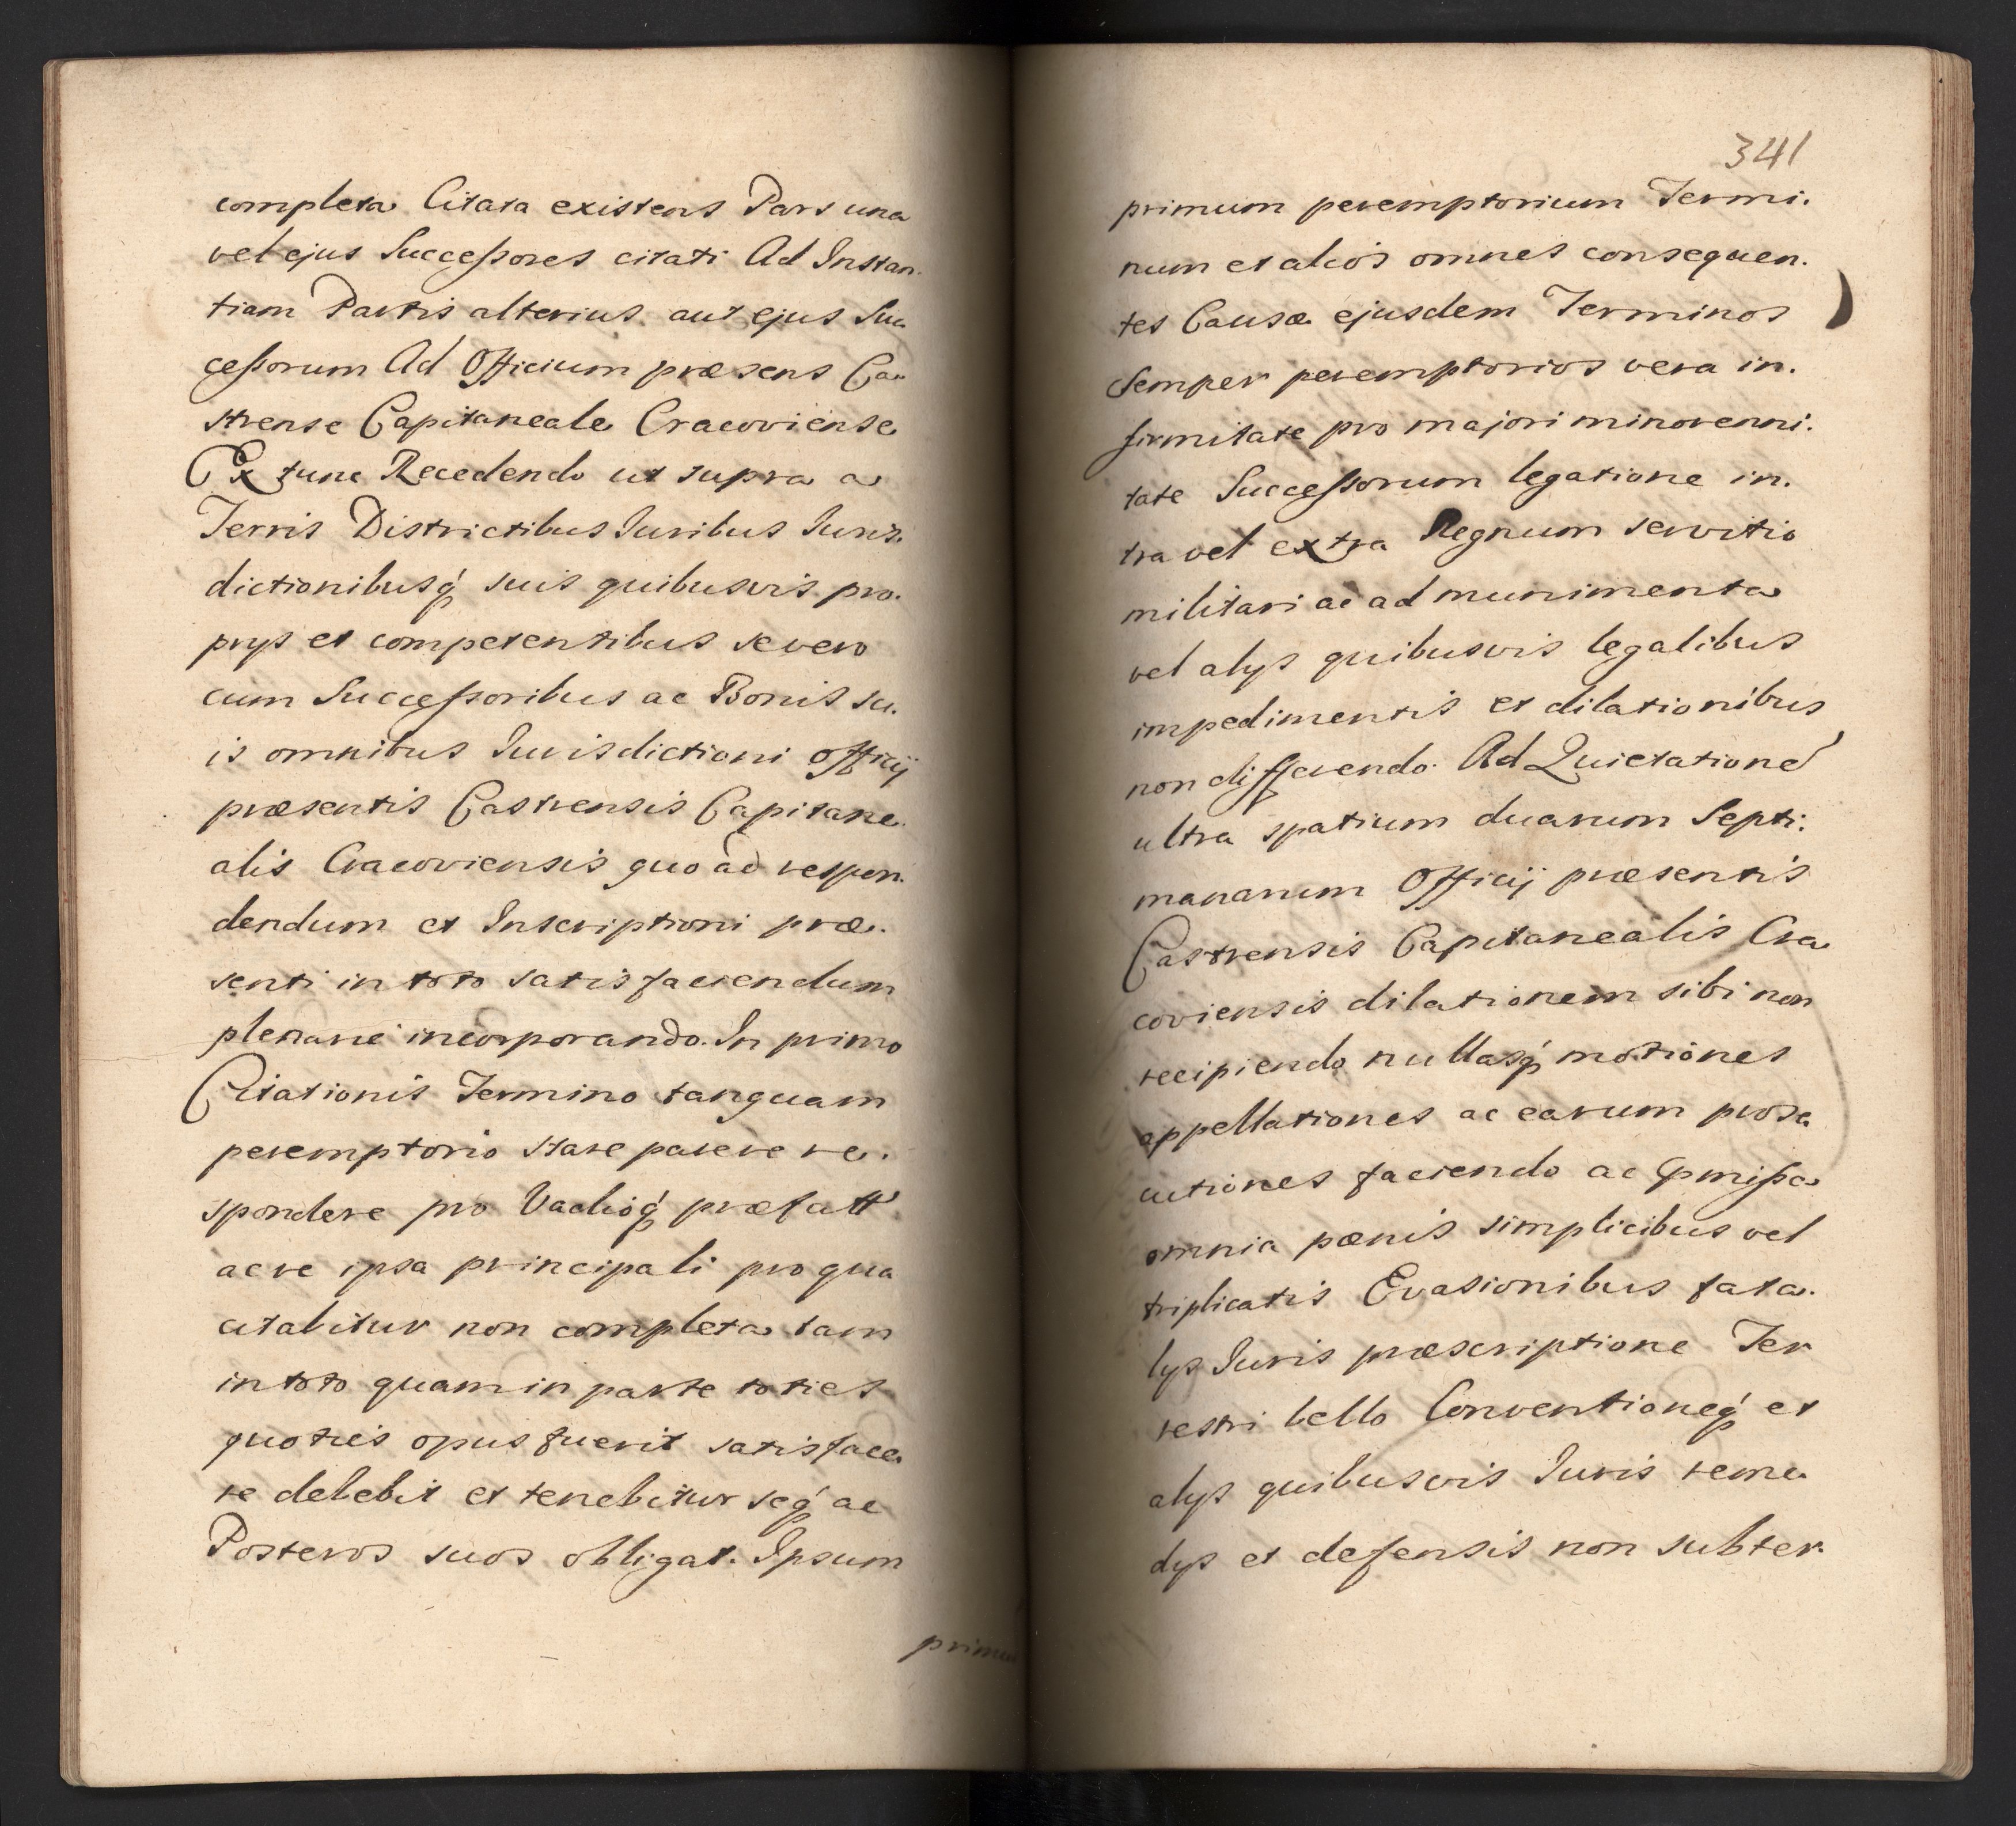 completa Citata existens Pars una
vel ejus Successores citati Ad Instan.
tiam Partis alterius aut ejus Suc
cessorum Ad Officium præsens Ca.
strense Capitaneale Cracoviense
Ex tunc Recedendo ut supra a
Terris Districtibus Iuribus Juris.
dictionibusq́ suis quibusvis pro.
prys et competentibus se vero
cum Successoribus ac Bonis su.
is omnibus Iurisdictioni Officij
præsentis Castrensis Capitane.
alis Cracoviensis quo ad respon.
dendum et Inscriptioni præ.
senti in toto satisfaciendum
plenarie incorporando. In primo
Citationis Termino tanquam
peremptorio stare parere re.
spondere pro Vadioq́ præfatt
ac re ipsa principali pro qua
citabitur non completa tam
in toto quam in parte toties
quoties opus fuerit satisface
re debebit et tenebitur seq́ ac
Posteros suos obligat. Ipsum
primu
341
primum peremptorium Termi.
num et alios omnes consequen.
tes Causæ ejusdem Terminos
semper peremptorios vera in.
firmitate pro majori minorenni.
tate Successorum legatione in.
tra vel extra Regnum servitio
militari ac ad munimenta
vel alys quibusvis legalibus
impedimentis et dilationibus
non differendo. Ad Quietatione
ultra spatium duarum Septi.
manarum Officij præsentis
Castrensis Capitanealis Cra
coviensis dilationem sibi non
recipiendo nullasq́ motiones
appellationes ac earum prose
cutiones faciendo ac pmissa
omnia pænis simplicibus vel
triplicatis Evasionibus fata.
lys Iuris præscriptione Ter
restri bello Conventioneq́ et
alys quibusvis Iuris reme
dys et defensis non subter.